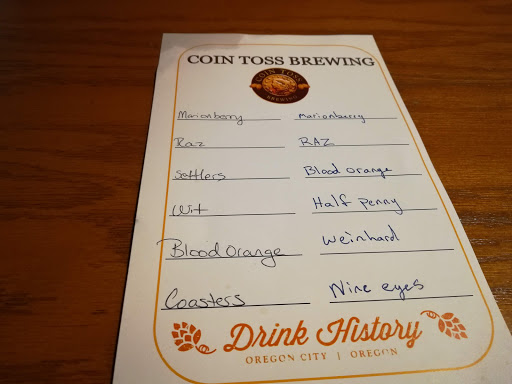 COIN TOSS BREWING
COIN TOSS
BREWING
Marionberry Marionberry
Raz RAZ
Settlers Blood Orange
Wit Half Penny
Blood Orange Weinhard
Coasters Nine eyes
Drink History
OREGON CITY | OREGON